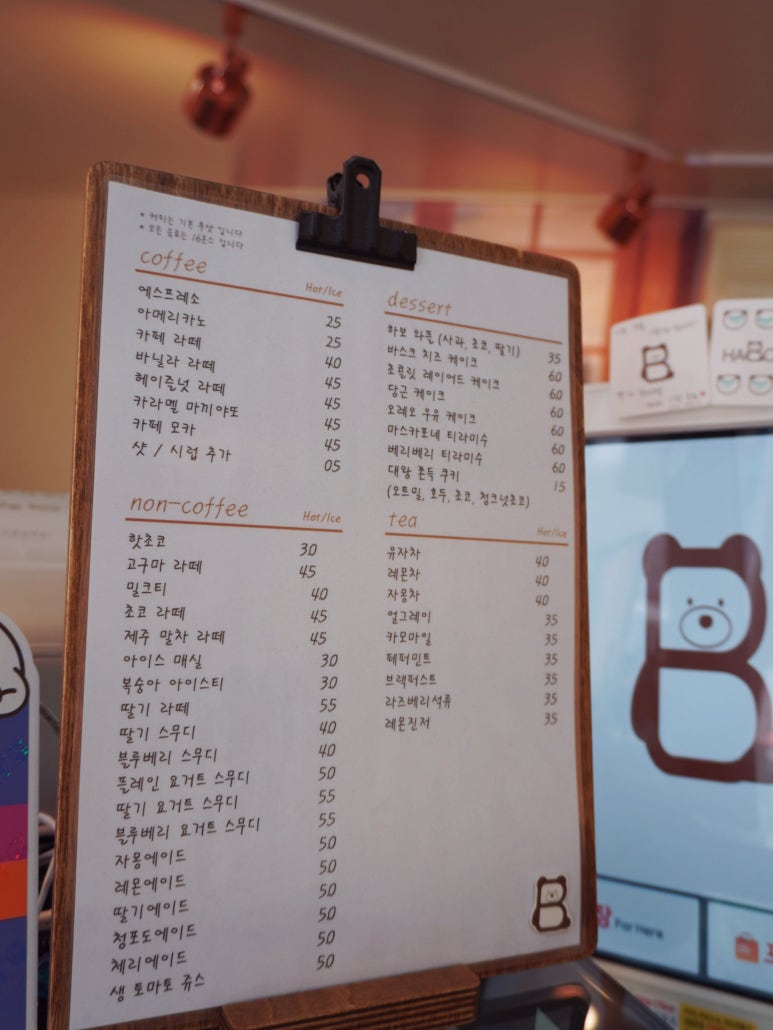 * 커피는 기본 투샷 입니다
* 모든 음료는 16온스 입니다
coffee
Hot/Ice
에스프레소
아메리카노 25
카페 라떼 25
바닐라 라떼 40
헤이즐넛 라떼 45
카라멜 마끼야또 45
카페 모카 45
샷 / 시럽 추가 05
non-coffee
Hot/Ice
핫초코 30
고구마 라떼 45
밀크티 40
초코 라떼 45
제주 말차 라떼 45
아이스 매실 30
복숭아 아이스티 30
딸기 라떼 55
딸기 스무디 40
블루베리 스무디 40
플레인 요거트 스무디 50
딸기 요거트 스무디 55
블루베리 요거트 스무디 55
자몽에이드 50
레몬에이드 50
딸기에이드 50
청포도에이드 50
체리에이드 50
생 토마토 쥬스 50
dessert
하보 와플 (사과, 초코, 딸기) 35
바스크 치즈 케이크 60
초콜릿 레이어드 케이크 60
당근 케이크 60
오레오 우유 케이크 60
마스카포네 티라미수 60
베리베리 티라미수 60
대왕 쫀득 쿠키 15
(오트밀, 호두, 초코, 청크넛초코)
tea
Hot/Ice
유자차 40
레몬차 40
자몽차 40
얼그레이 35
카모마일 35
페퍼민트 35
브랙퍼스트 35
라즈베리석류 35
레몬진저 35
For Here